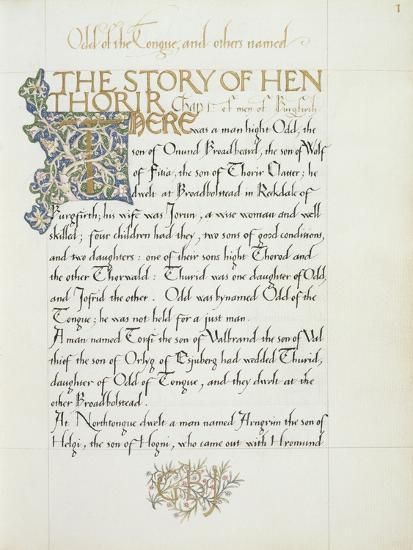 1
Odd of the Tongue, and others named
THE STORY OF HEN
THORIR. Chap 1: of men of Burgfirth
THERE
was a man hight Odd, the
son of Onund Broadbeard, the son of Wolf
of Fitia, the son of Thorir Clatter; he
dwelt at Broadbolstead in Reekdale of
Burgfirth; his wife was Jorun, a wise woman and well
skilled; four children had they, two sons of good conditions,
and two daughters: one of their sons hight Thorod and
the other Thorwald: Thurid was one daughter of Odd,
and Jofrid the other. Odd was bynamed Odd of the
Tongue; he was not held for a just man.
A man named Torfi the son of Valbrand the son of Val
thiof the son of Orlyg of Esjuberg had wedded Thurid,
daughter of Odd of Tongue, and they dwelt at the
other Broadbolstead.
At Northtongue dwelt a man named Arngrim the son of
Helgi, the son of Hogni, who came out with Hromund